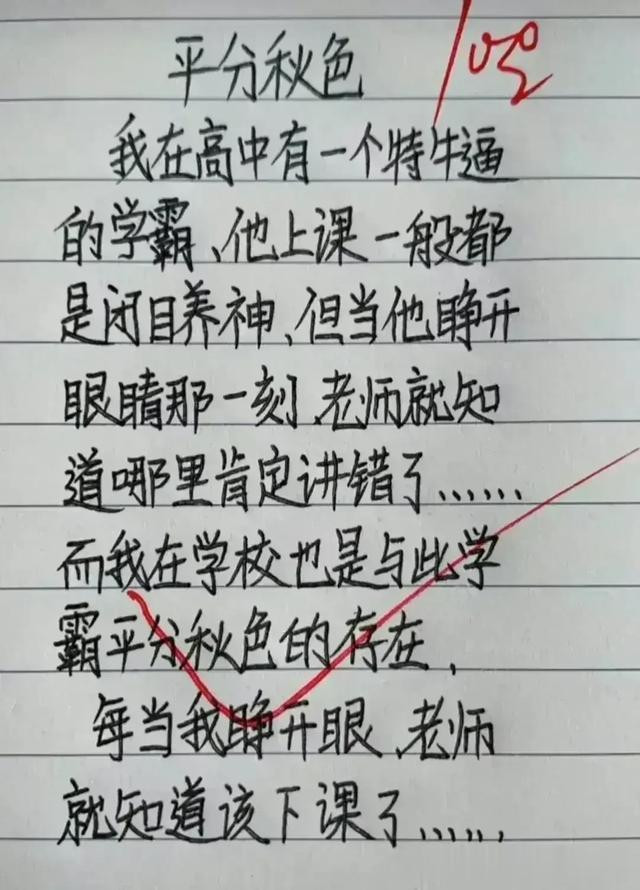 平分秋色
我在高中有一个特牛逼
的学霸、他上课一般都
是闭目养神、但当他睁开
眼睛那一刻、老师就知
道哪里肯定讲错了......
而我在学校也是与此学
霸平分秋色的存在、
每当我睁开眼、老师
就知道该下课了......